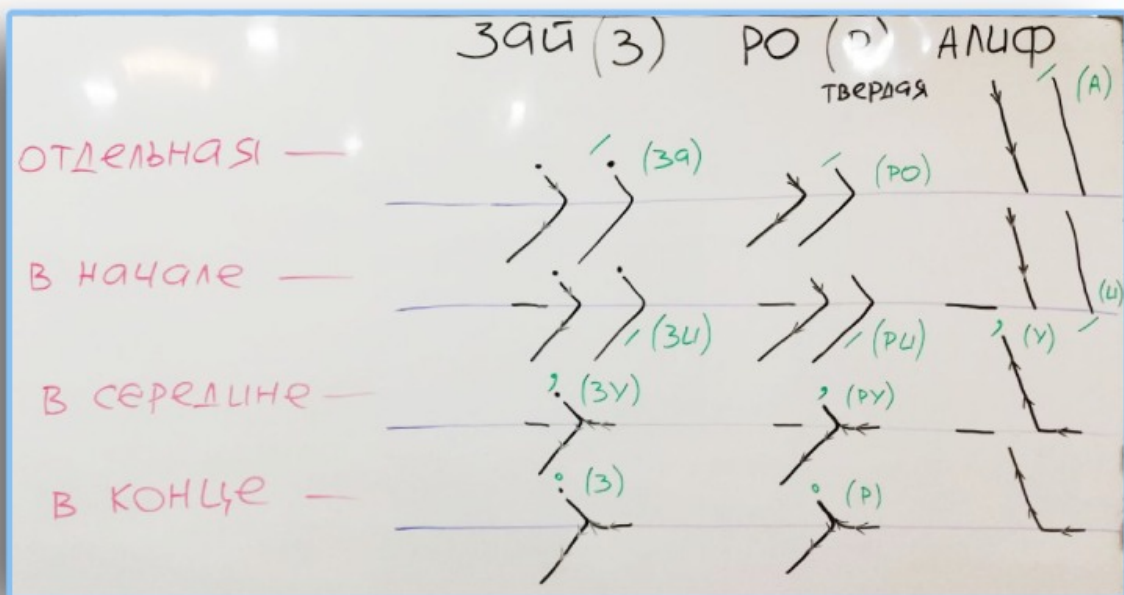 ЗАЙ (З) РО (Р) АЛИФ
твердая
(А)
ОТДЕЛЬНАЯ — (ЗА) (РО)
В НАЧАЛЕ — (ЗИ) (РИ) (И)
В СЕРЕДИНЕ — (ЗУ) (РУ) (У)
В КОНЦЕ — (З) (Р)